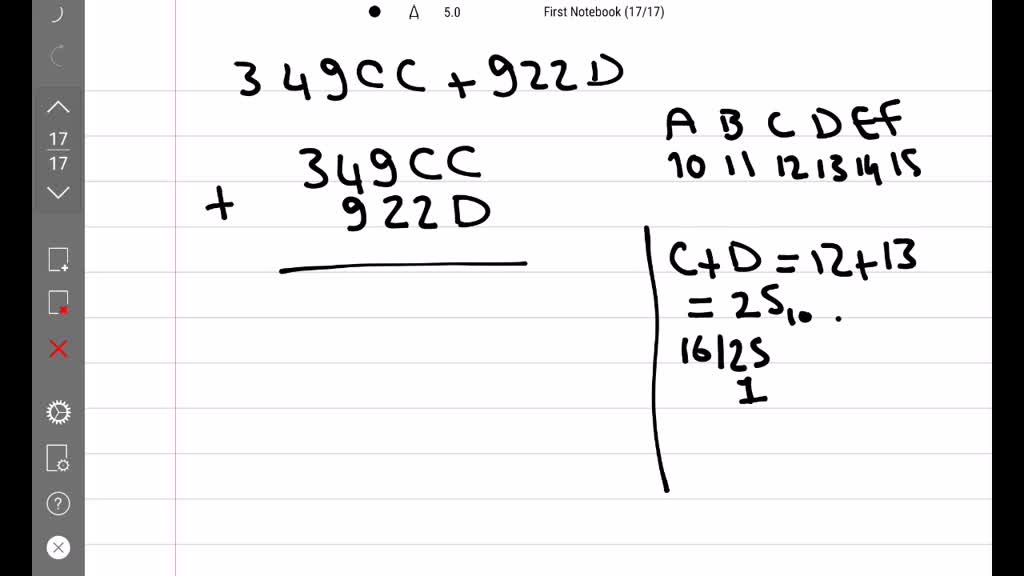 5.0 First Notebook (17/17)
349CC + 922D
A B C D E F
10 11 12 13 14 15
17
17
349CC
+ 922D
C + D = 12 + 13
= 25₁₀ .
16|25
1
?